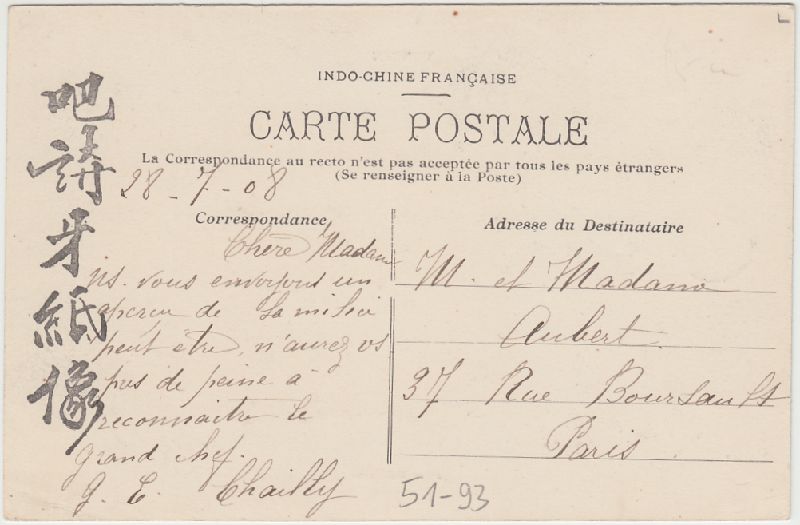 INDO-CHINE FRANÇAISE
CARTE POSTALE
La Correspondance au recto n'est pas acceptée par tous les pays étrangers
(Se renseigner à la Poste)
28-7-08
Correspondance
Chère Madame
Ns. vous envoyons un
aperçu de la milice
peut être, n'aurez vs
pas de peine à
reconnaitre le
grand chef.
G. E. Chailly
Adresse du Destinataire
M. et Madame
Aubert
37 Rue Boursault
Paris
51-93
吧講牙紙像